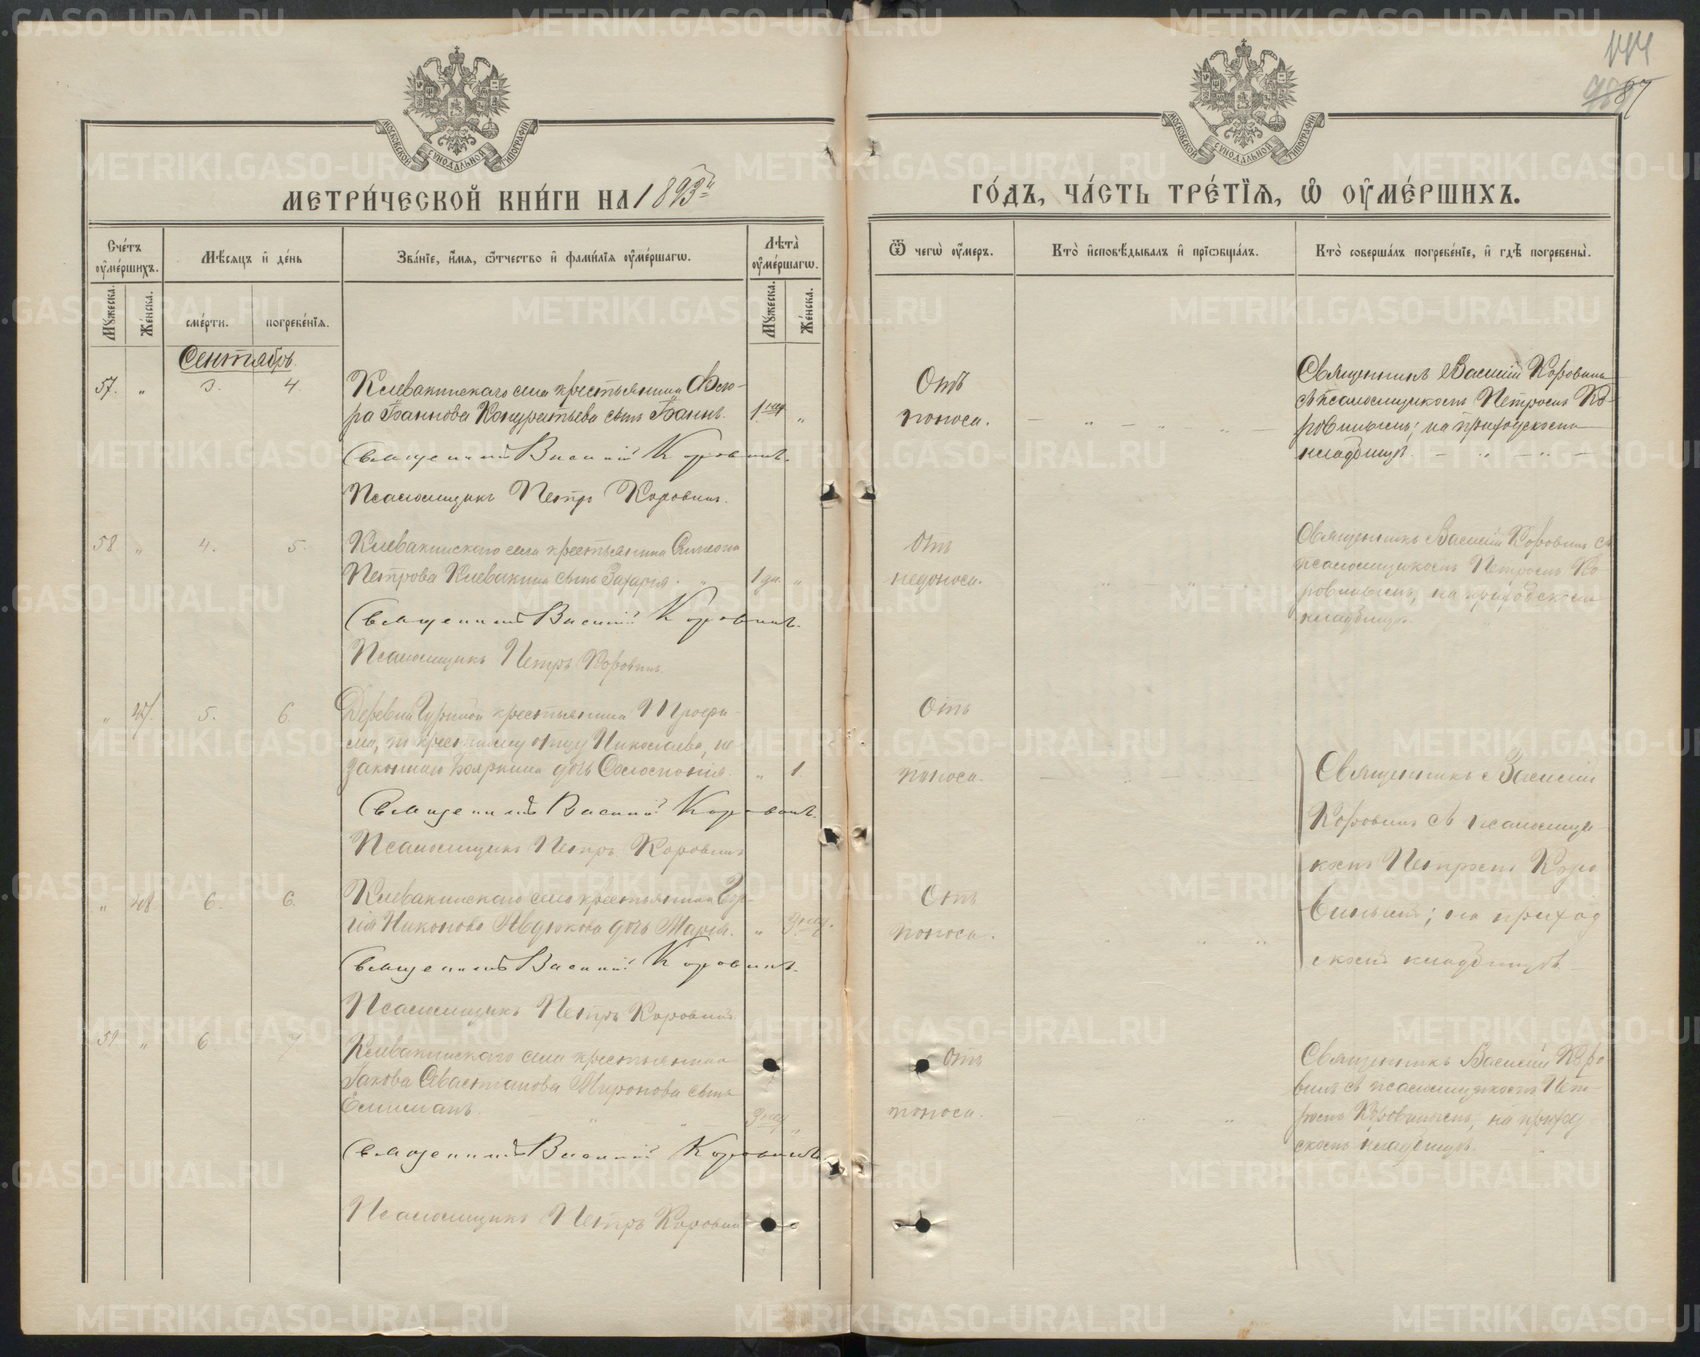 МЕТРИ́ЧЕСКОЙ КНИ́ГИ НА 1893й
ГО́ДЪ, ЧА́СТЬ ТРЕ́ТЇѦ, Ѡ҆ ОУ҆МЕ́РШИХЪ.
Сче́тъ оу҆ме́ршихъ.
Мѣ́сѧцъ и҆ де́нь
Зва́нїе, и҆́мѧ, ѻ҆́тчество и҆ фами́лїѧ оу҆ме́ршагѡ.
Лѣ́та оу҆ме́ршагѡ.
Ѿ чегѡ̀ оу҆́меръ.
Кто̀ и҆сповѣ́дывалъ и҆ прїѡбща́лъ.
Кто̀ соверша́лъ погребе́нїе, и҆ гдѣ̀ погребены̀.
Мꙋ́жеска.
Же́нска.
сме́рти.
погребе́нїѧ.
Мꙋ́жеска.
Же́нска.
Сентябрь.
57. " 3. 4.
Клевакинскаго села крестьянина Ѳео-
ра Іоаннова Кондратьева сынъ Іоаннъ. 1 "
Священникъ Василій Коровинъ.
Псаломщикъ Петръ Коровинъ.
Отъ
поноса.
Священникъ Василій Коровинъ
съ псаломщикомъ Петромъ Ко-
ровинымъ; на приходскомъ
кладбищѣ
58 " 4. 5.
Клевакинскаго села крестьянина Симеона
Петрова Клевакина сынъ Захарія. 1 дн. "
Священникъ Василій Коровинъ.
Псаломщикъ Петръ Коровинъ.
Отъ
недоноса.
Священникъ Василій Коровинъ съ
псаломщикомъ Петромъ Ко
ровинымъ, на приходскомъ
кладбищѣ.
" 47. 5. 6.
Деревни крестьянина Трофи-
ма, по крестному отцу Николаева, не
законнаго дочь Соломонія. " 1
Священникъ Василій Коровинъ.
Псаломщикъ Петръ Коровинъ
Отъ
поноса.
Священникъ Василій
Коровинъ съ псаломщи
комъ Петромъ Коро
винымъ; на приход
скомъ кладбищѣ
" 48 6. 6.
Клевакинскаго села крестьянина Гу-
рія Никонова Авдюкова дочь Марія. "
Священникъ Василій Коровинъ.
Псаломщикъ Петръ Коровинъ
Отъ
поноса.
59 " 6 7
Клевакинскаго села крестьянина
Іакова Севастіанова Миронова сынъ
Емиліанъ.
Священникъ Василій Коровинъ
Псаломщикъ Петръ Коровинъ
Отъ
поноса.
Священникъ Василій Коро
винъ съ псаломщикомъ Пет-
ромъ Коровинымъ, на приход
скомъ кладбищѣ.